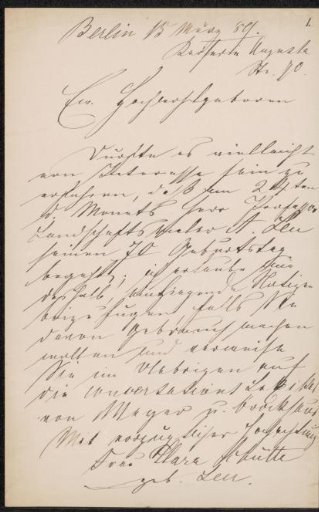 1.
Berlin 15 März 89.
Kaiserin Augusta
Str. 70.
Ew. Hochwohlgeboren
Dürfte es vielleicht
von Interesse sein zu
erfahren, daß am 24ten
d. Monats Herr Professor
Landschaftsmaler A. Leu
seinen 70 Geburtstag
begeht; ich erlaube mir
deshalb Notizen
beizufügen falls Sie
davon Gebrauch machen
wollen und verweise
Sie im Uebrigen auf
die Conversations Lexika
von Meyer u. Brockhaus
Mit vorzüglicher Hochachtung
Frau Clara Schulte
geb. Leu.